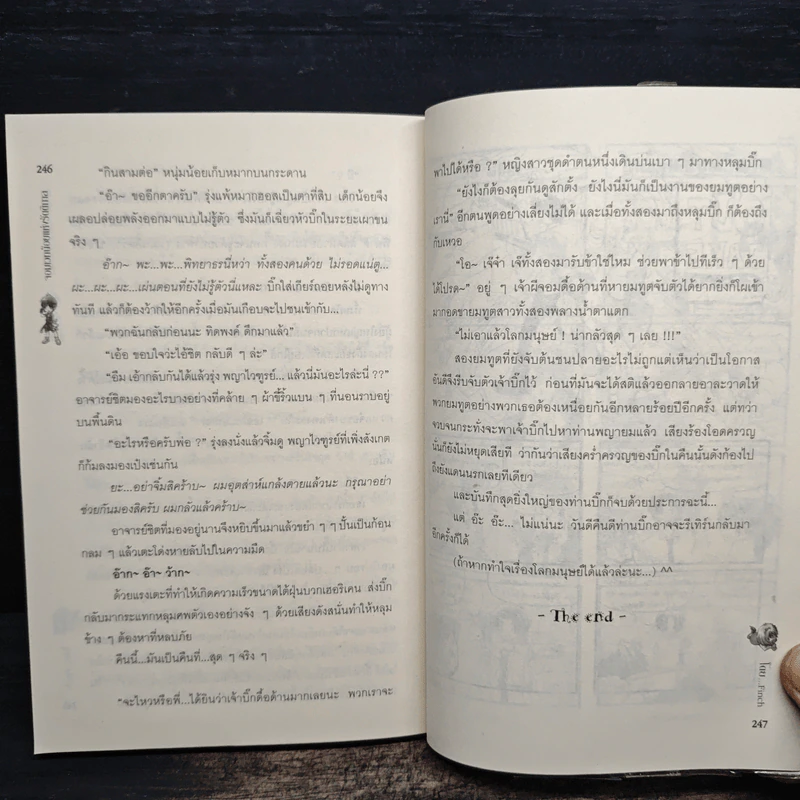 246
"กินสามต่อ" หนุ่มน้อยเก็บหมากบนกระดาน
"อ๊า~ ขออีกตาครับ" รุ่งแพ้หมากฮอสเป็นตาที่สิบ เด็กน้อยจึง
เผลอปล่อยพลังออกมาแบบไม่รู้ตัว ซึ่งมันก็เฉี่ยวหัวบิ๊กในระยะเผาขน
จริง ๆ
อ๊าก~ พะ...พะ...พิทยาธรนี่หว่า ทั้งสองคนด้วย ไม่รอดแน่ตู...
ผะ...ผะ...ผะ...เผ่นตอนที่ยังไม่รู้ตัวนี่แหละ บิ๊กใส่เกียร์ถอยหลังไม่ดูทาง
ทันที แล้วก็ต้องว้ากให้อีกครั้งเมื่อมันเกือบจะไปชนเข้ากับ...
"พวกฉันกลับก่อนนะ ทิดพงค์ ดึกมาแล้ว"
"เอ้อ ขอบใจว่ะไอ้ชิต กลับดี ๆ ล่ะ"
"อืม เอ้ากลับกันได้แล้วรุ่ง พญาไวฑูรย์... แล้วนี่มันอะไรล่ะนี่ ??"
อาจารย์ชิตมองอะไรบางอย่างที่คล้าย ๆ ผ้าขี้ริ้วแบน ๆ ที่นอนราบอยู่
บนพื้นดิน
"อะไรหรือครับพ่อ ?" รุ่งลงนั่งแล้วจิ้มดู พญาไวฑูรย์ที่เพิ่งสังเกต
ก็ก้มลงมองเป๋งเช่นกัน
ยะ...อย่าจิ้มสิคร้าบ~ ผมอุตส่าห์แกล้งตายแล้วนะ กรุณาอย่า
ช่วยกันมองสิครับ ผมกลัวแล้วคร้าบ~
อาจารย์ชิตที่มองอยู่นานจึงหยิบขึ้นมาแล้วขยำ ๆ ๆ ปั้นเป็นก้อน
กลม ๆ แล้วเตะโด่งหายลับไปในความมืด
อ๊าก~ อ๊า~ ว้าก~
ด้วยแรงเตะที่ทำให้เกิดความเร็วขนาดไต้ฝุ่นบวกเฮอริเคน ส่งบิ๊ก
กลับมากระแทกหลุมศพตัวเองอย่างจัง ๆ ด้วยเสียงดังสนั่นทำให้หลุม
ข้าง ๆ ต้องหาที่หลบภัย
คืนนี้...มันเป็นคืนที่...สุด ๆ จริง ๆ
"จะไหวหรือพี่...ได้ยินว่าเจ้าบิ๊กดื้อด้านมากเลยนะ พวกเราจะ
พาไปได้หรือ ?" หญิงสาวชุดดำตนหนึ่งเดินบ่นเบา ๆ มาทางหลุมบิ๊ก
"ยังไงก็ต้องลุยกันดูสักตั้ง ยังไงนี่มันก็เป็นงานของยมทูตอย่าง
เรานี่" อีกตนพูดอย่างเลี่ยงไม่ได้ และเมื่อทั้งสองมาถึงหลุมบิ๊ก ก็ต้องถึง
กับเหวอ
"โอ~ เจ๊จ๋า เจ๊ทั้งสองมารับข้าใช่ไหม ช่วยพาข้าไปทีเร็ว ๆ ด้วย
ได้โปรด~" อยู่ ๆ เจ้าผีจอมดื้อด้านที่หายมทูตจับตัวได้ยากยิ่งก็โผเข้า
มากอดขายมทูตสาวทั้งสองพลางน้ำตาแตก
"ไม่เอาแล้วโลกมนุษย์ ! น่ากลัวสุด ๆ เลย !!!"
สองยมทูตที่ยังจับต้นชนปลายอะไรไม่ถูกแต่เห็นว่าเป็นโอกาส
อันดีจึงรีบจับตัวเจ้าบิ๊กไว้ ก่อนที่มันจะได้สติแล้วออกลายอาละวาดให้
พวกยมทูตอย่างพวกเธอต้องเหนื่อยกันอีกหลายร้อยปีอีกครั้ง แต่ทว่า
จวบจนกระทั่งจะพาเจ้าบิ๊กไปหาท่านพญายมแล้ว เสียงร้องโอดครวญ
นั้นก็ยังไม่หยุดเสียที ว่ากันว่าเสียงคร่ำครวญของบิ๊กในคืนนั้นดังก้องไป
ถึงยังแดนนรกเลยทีเดียว
และบันทึกสุดยิ่งใหญ่ของท่านบิ๊กก็จบด้วยประการฉะนี้...
แต่ อ๊ะ อ๊ะ... ไม่แน่นะ วันดีคืนดีท่านบิ๊กอาจจะรีเทิร์นกลับมา
อีกครั้งก็ได้
(ถ้าหากทำใจเรื่องโลกมนุษย์ได้แล้วล่ะนะ...) ^^
- The end -
โดย... Finch
247